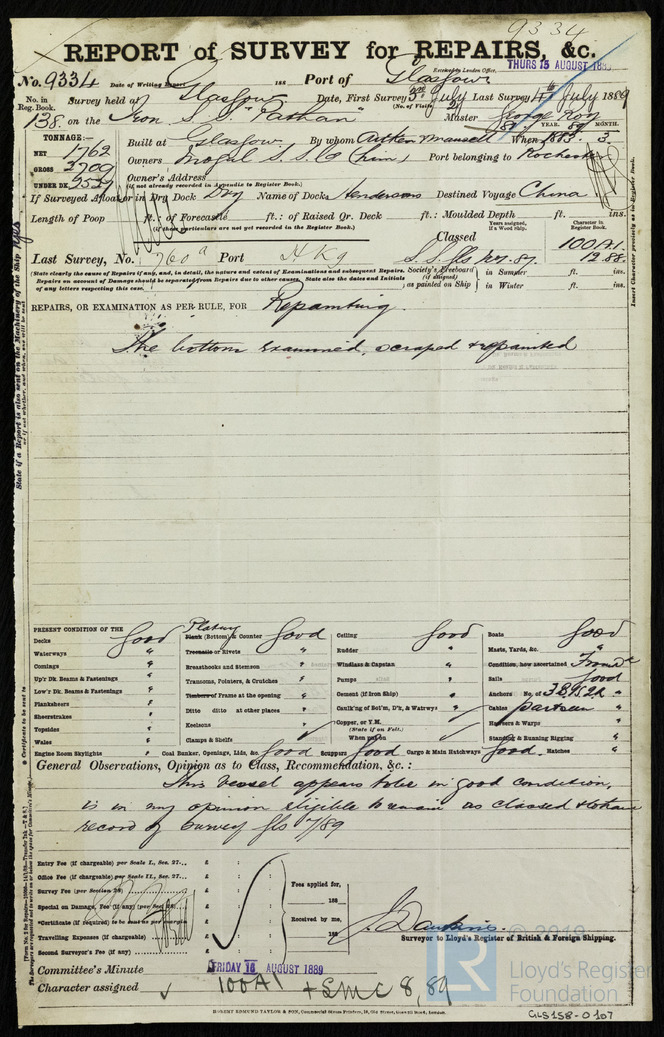 9334
REPORT of SURVEY for REPAIRS, &c.
Received in London Office, THURS 15 AUGUST 188
No. 9334 Date of Writing Report 188 Port of Glasgow
No. in Reg. Book. Survey held at Glasgow Date, First Survey 3rd July Last Survey July 1889
(No. of Visits
138. on the Iron S. S. "Pathan" Master George Roy
TONNAGE:—
NET 1762
GROSS 2709
UNDER DK
Built at Glasgow By whom Aitken & Mansell When 1883. 3.
YEAR. MONTH.
Owners Mogul S. S. Co (Lim) Port belonging to Rochester
Owner's Address
(if not already recorded in Appendix to Register Book.)
If Surveyed Afloat or in Dry Dock Dry Name of Dock Hendersons Destined Voyage China
Length of Poop ft.: of Forecastle ft.: of Raised Qr. Deck ft.: Moulded Depth ft. ins.
(if these particulars are not yet recorded in the Register Book.)
Classed
Years assigned, if a Wood Ship.
Character in Register Book.
100A1.
12.88
Last Survey, No. 760a Port H Kg
(State clearly the cause of Repairs if any, and, in detail, the nature and extent of Examinations and subsequent Repairs.
Repairs on account of Damage should be separated from Repairs due to other causes. State also the dates and Initials
of any letters respecting this case.)
Society's Freeboard (if assigned) as painted on Ship
in Summer ft. ins.
in Winter ft. ins.
REPAIRS, OR EXAMINATION AS PER RULE, FOR Repainting.
The bottom examined, scraped & repainted
PRESENT CONDITION OF THE
Decks Good
Waterways "
Comings "
Up'r Dk. Beams & Fastenings "
Low'r Dk. Beams & Fastenings "
Planksheers "
Sheerstrakes "
Topsides "
Wales "
Engine Room Skylights "
Plating
Plank (Bottom) & Counter Good
Treenails or Rivets "
Breasthooks and Stemson "
Transoms, Pointers, & Crutches "
Timbers of Frame at the opening "
Ditto ditto at other places "
Keelsons "
Clamps & Shelfs
Coal Bunker, Openings, Lids, &c. Good
Ceiling Good
Rudder "
Windlass & Capstan "
Pumps "
Cement (if from Ship) "
Caulk'g of Bot'm, D'k, & Watrwys
Copper, or Y.M.
(State if on Felt.)
When put on
Scuppers Good Cargo & Main Hatchways Good. Hatches "
Boats Good
Masts, Yards, &c. "
Condition, how ascertained From Dk
Sails Good
Anchors No. of 3B, 1S, 2K "
Cables part seen "
Hawsers & Warps "
Standing & Running Rigging "
General Observations, Opinion as to Class, Recommendation, &c.:
This vessel appears to be in good condition,
is in my opinion eligible to remain as classed & to have
record of Survey Gls 7/89
Entry Fee (if chargeable) per Scale I., Sec. 27... £ : :
Office Fee (if chargeable) per Scale II., Sec. 27... £ : :
Survey Fee (per Section 28) £ : :
Special or Damage, Fee (if any) (per Sec. 28) £ : :
*Certificate (if required) to be sent as per margin
Travelling Expenses (if chargeable) £ : :
Second Surveyor's Fee (if any) £ : :
Fees applied for,
188
Received by me,
188
J. Dawkins.
Surveyor to Lloyd's Register of British & Foreign Shipping.
Committee's Minute FRIDAY 16 AUGUST 1889
Character assigned 100A1 + LMC 8,89
ROBERT EDMUND TAYLOR & SON, Commercial Steam Printers, 19, Old Street, Goswell Road, London.
© 2019
LR
Lloyd's Register
Foundation
GLS158-0107
Insert Character precisely as in Register Book.
State if a Report is also sent on the Machinery of the Ship